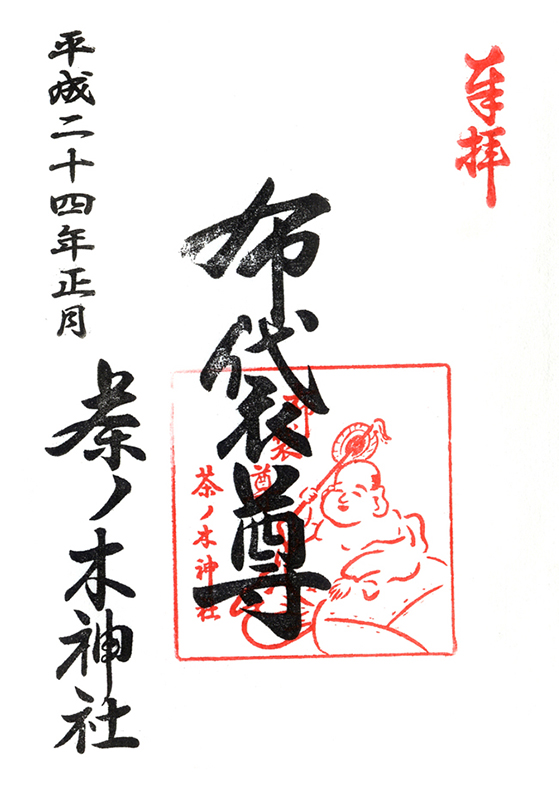 奉拝
布袋尊
布袋尊
茶ノ木神社
平成二十四年正月
茶ノ木神社